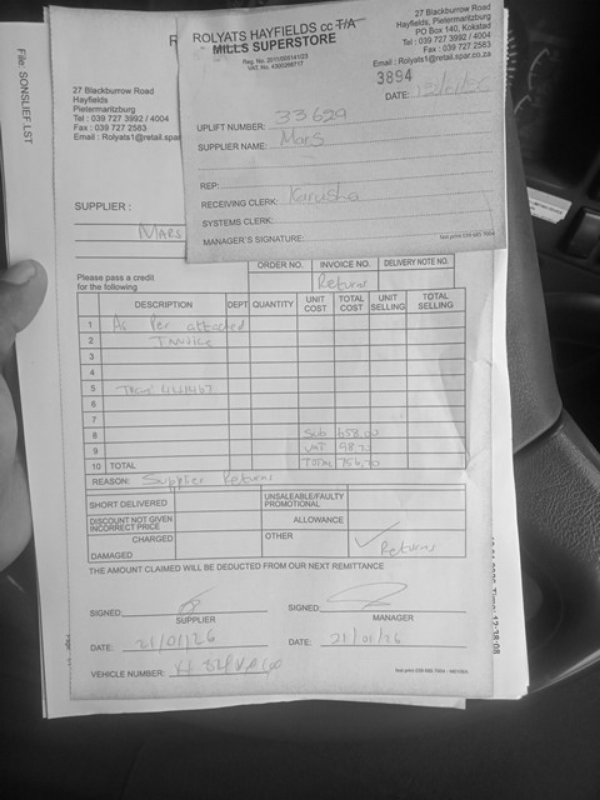 File: SONSLIEF.LST
ROLYATS HAYFIELDS cc T/A
MILLS SUPERSTORE
27 Blackburrow Road
Hayfields, Pietermaritzburg
PO Box 140, Kokstad
Tel : 039 727 3992 / 4004
Fax : 039 727 2583
Email : Rolyats1@retail.spar.co.za
3894
DATE:
UPLIFT NUMBER: 33629
SUPPLIER NAME: Mars
REP:
RECEIVING CLERK: Karusha
SYSTEMS CLERK:
MANAGER'S SIGNATURE:
R
27 Blackburrow Road
Hayfields
Pietermaritzburg
Tel : 039 727 3992 / 4004
Fax : 039 727 2583
Email : Rolyats1@retail.spar
SUPPLIER :
MARS
Please pass a credit
for the following
ORDER NO. INVOICE NO. DELIVERY NOTE NO.
Return
DESCRIPTION DEPT QUANTITY UNIT COST TOTAL COST UNIT SELLING TOTAL SELLING
1 As Per attached
2 Invoice
3
4
5 441467
6
7
8 Sub 658.00
9 VAT 98.70
10 TOTAL Total 756,70
REASON: Supplier Returns
SHORT DELIVERED UNSALEABLE/FAULTY PROMOTIONAL
DISCOUNT NOT GIVEN INCORRECT PRICE ALLOWANCE
CHARGED OTHER ✓ Returns
DAMAGED
THE AMOUNT CLAIMED WILL BE DEDUCTED FROM OUR NEXT REMITTANCE
SIGNED: SIGNED:
SUPPLIER MANAGER
DATE: 21/01/26 DATE: 21/01/26
VEHICLE NUMBER:
Time: 12:38:08